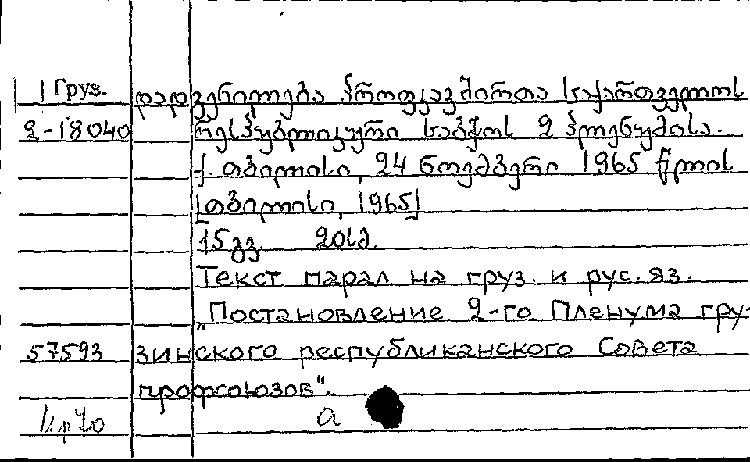 Груз. დადგენილება პროფკავშირთა საქართველოს
2-18040 რესპუბლიკური საბჭოს 2 პლენუმისა.
ქ. თბილისი, 24 ნოემბერი 1965 წლის
[თბილისი, 1965]
15 გვ. 20სმ.
Текст парал на груз. и рус. яз.
„Постановление 2-го Пленума гру-
57593 зинского республиканского Совета
профсоюзов".
а